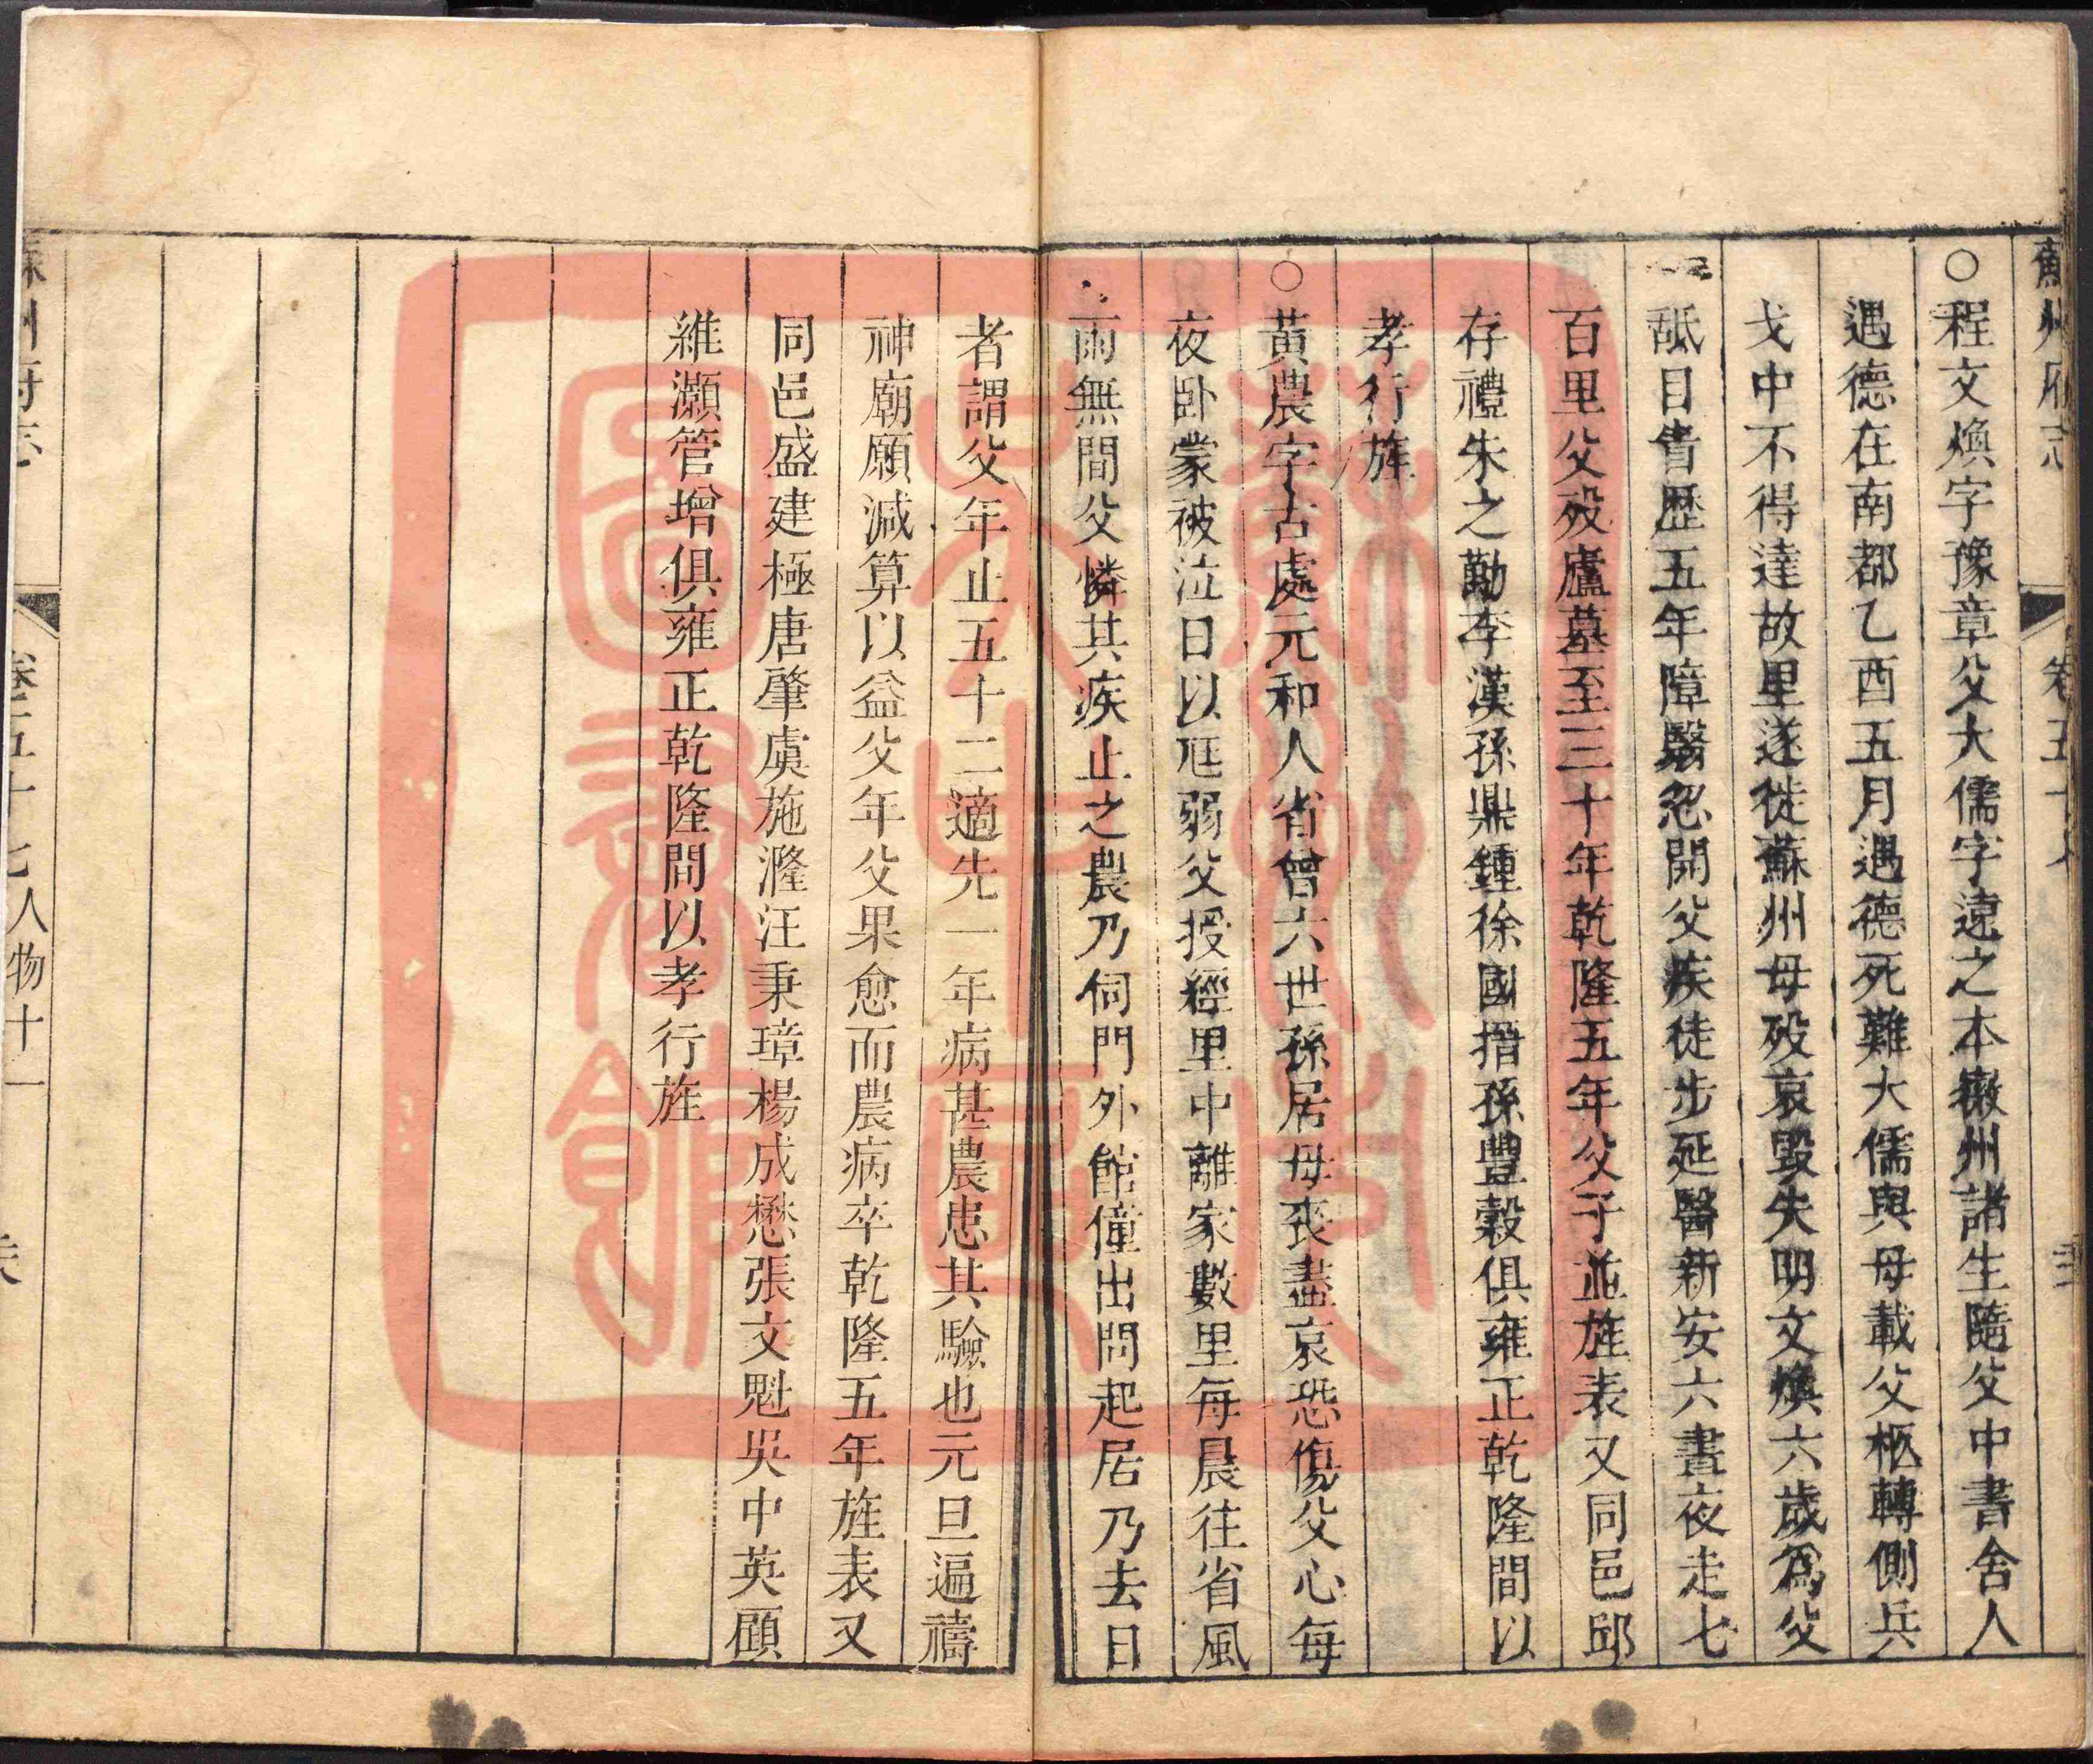 蘇州府志 卷五十七人
○程文煥字豫章父大儒字遠之本徽州諸生隨父中書舍人
遇德在南都乙酉五月遇德死難大儒與母載父柩轉側兵
戈中不得達故里遂徙蘇州母歿哀毀失明文煥六歲爲父
舐目眚歷五年障翳忽開父疾徒步延醫新安六晝夜走七
百里父歿廬墓至三十年乾隆五年父子並旌表又同邑邱
存禮朱之勤李漢孫鼎鍾徐國揩孫豐穀俱雍正乾隆間以
孝行旌
○黃農字古處元和人省曾六世孫居母喪盡哀恐傷父心每
夜卧蒙被泣日以尫弱父授經里中離家數里每晨往省風
雨無間父憐其疾止之農乃伺門外館僮出問起居乃去日
者謂父年止五十二適先一年病甚農患其驗也元旦遍禱
神廟願減算以益父年父果愈而農病卒乾隆五年旌表又
同邑盛建極唐肇虞施漋汪秉璋楊成懋張文魁吳中英顧
維灝管增俱雍正乾隆間以孝行旌
蘇州府志 卷五十七人物十一